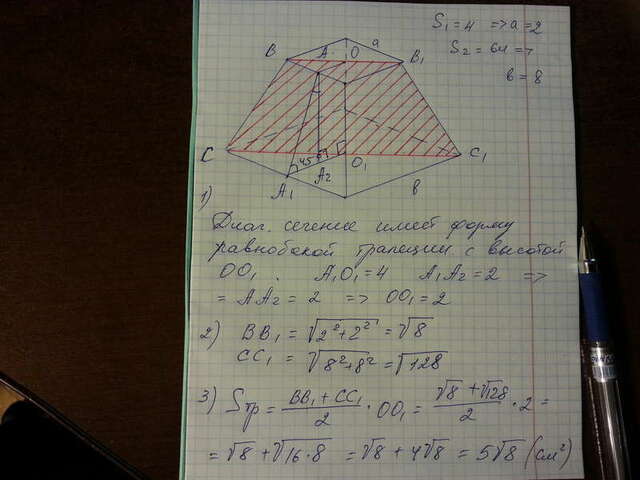 S₁ = 4 => a = 2
S₂ = 64 =>
b = 8
B A O a B₁
C 45° O₁ C₁
A₁ A₂ b
1)
Диаг. сечение имеет форму
равнобокой трапеции с высотой
OO₁. A₁O₁ = 4 A₁A₂ = 2 =>
= AA₂ = 2 => OO₁ = 2
2) BB₁ = √2²+2² = √8
CC₁ = √8²+8² = √128
3) Sтр = BB₁ + CC₁ / 2 · OO₁ = √8 + √128 / 2 · 2 =
= √8 + √16·8 = √8 + 4√8 = 5√8 (см²)